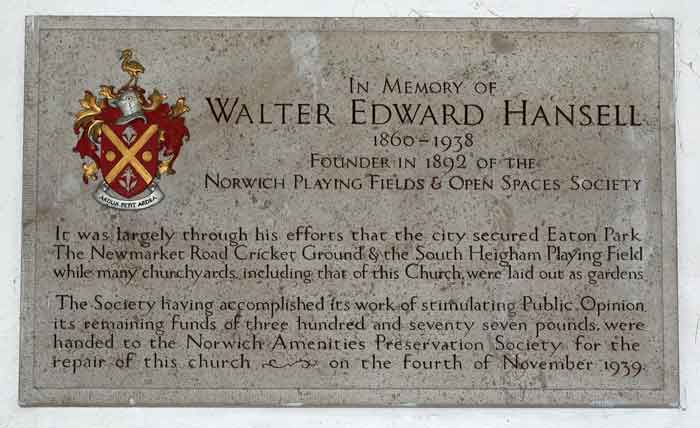 ARDUA PETIT ARDEA
IN MEMORY OF
WALTER EDWARD HANSELL
1860–1938
FOUNDER IN 1892 OF THE
NORWICH PLAYING FIELDS & OPEN SPACES SOCIETY
It was largely through his efforts that the city secured Eaton Park
The Newmarket Road Cricket Ground & the South Heigham Playing Field
while many churchyards, including that of this Church, were laid out as gardens
The Society having accomplished its work of stimulating Public Opinion
its remaining funds of three hundred and seventy seven pounds, were
handed to the Norwich Amenities Preservation Society for the
repair of this church on the fourth of November 1939.